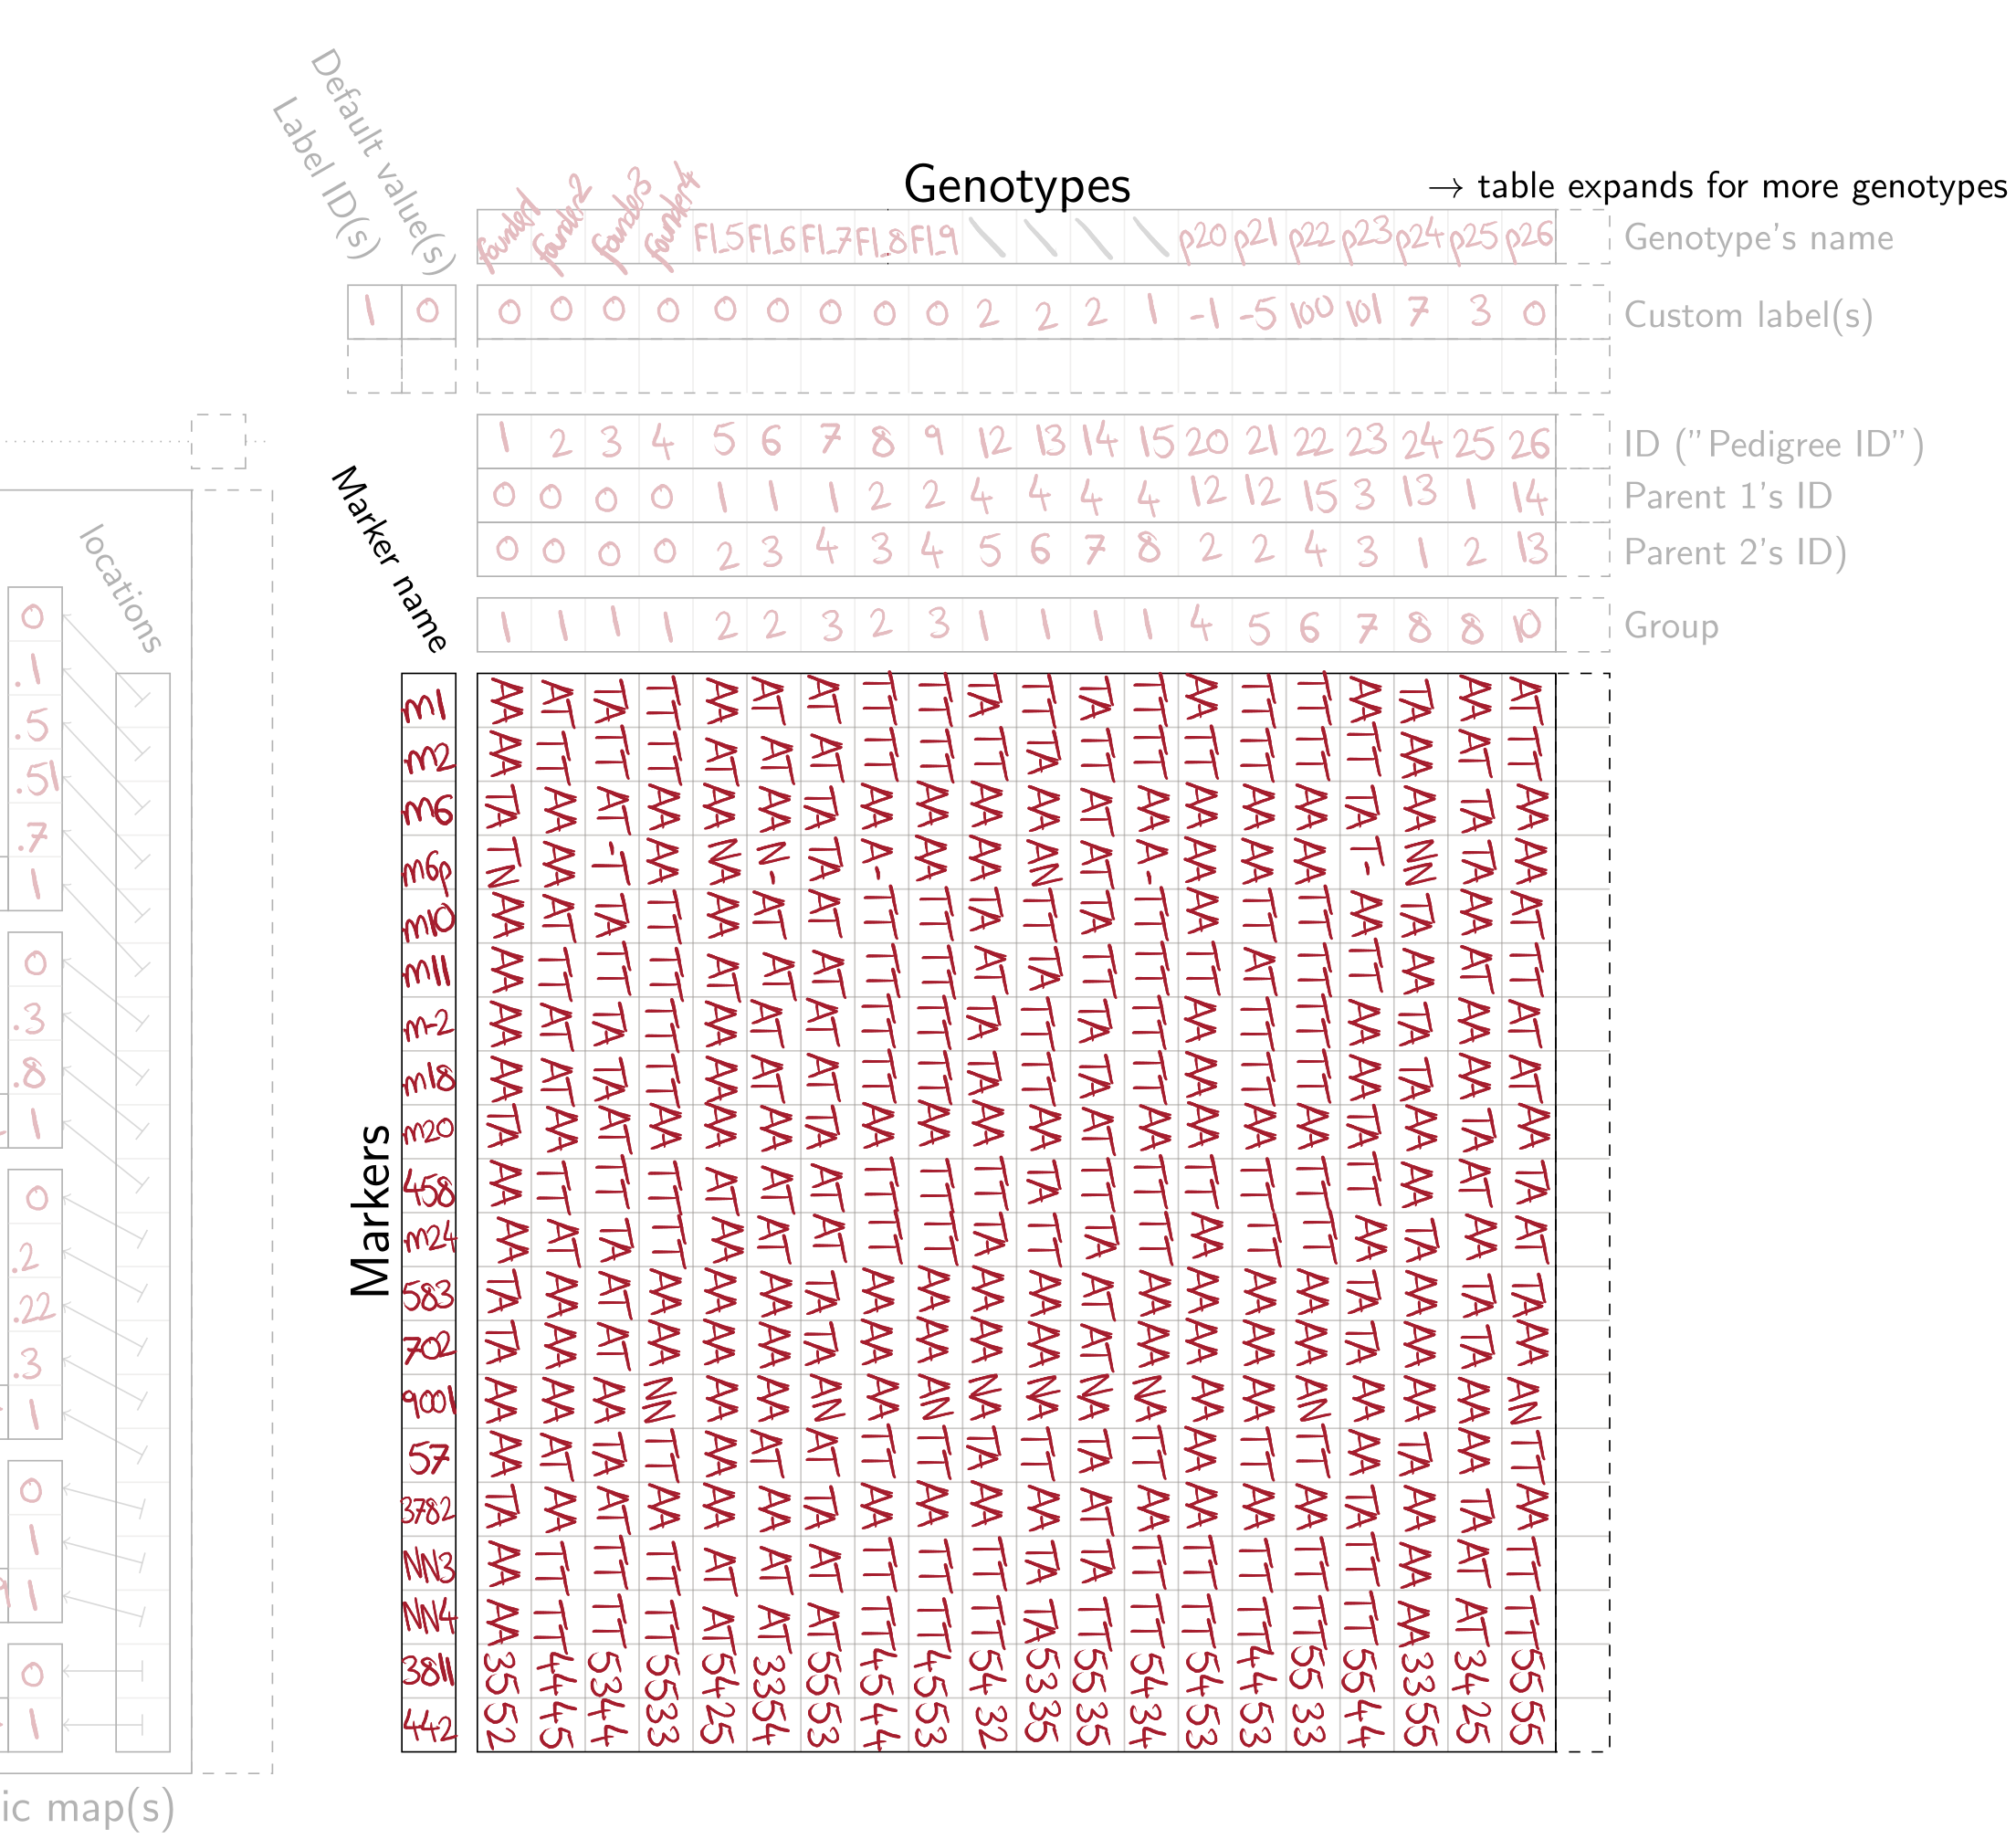 Default value(s)
Label ID(s)
Genotypes
→ table expands for more genotypes
founder1 founder2 founder3 founder4 F1_5 F1_6 F1_7 F1_8 F1_9 \ \ \ \ p20 p21 p22 p23 p24 p25 p26 Genotype's name
1 0 0 0 0 0 0 0 0 0 0 2 2 2 1 -1 -5 100 101 7 3 0 Custom label(s)
1 2 3 4 5 6 7 8 9 12 13 14 15 20 21 22 23 24 25 26 ID ("Pedigree ID")
0 0 0 0 1 1 1 2 2 4 4 4 4 12 12 15 3 13 1 14 Parent 1's ID
0 0 0 0 2 3 4 3 4 5 6 7 8 2 2 4 3 1 2 13 Parent 2's ID)
1 1 1 1 2 2 3 2 3 1 1 1 1 4 5 6 7 8 8 10 Group
Marker name
Markers
m1 AA AT TA TT AA AT AT TT TT TA TT TA TT AA TT TT AA TA AA AT
m2 AA TT TT TT AT AT AT TT TT TT TA TT TT TT TT TT TT AA AT TT
m6 TA AA AT AA AA AA TA AA AA AA AA AT AA AA AA AA TA AA TA AA
m6p TN AA -T AA NA N- TA A- AA AA AN AT A- AA AA AA T- NN TA AA
m10 AA AT TA TT AA AT AT TT TT TA TT TA TT AA TT TT AA TA AA AT
m11 AA TT TT TT AT AT AT TT TT AT TA TT TT TT AT TT TT AA AT TT
m-2 AA AT TA TT AA AT AT TT TT TA TT TA TT AA TT TT AA TA AA AT
m18 AA AT TA TT AA AT AT TT TT TA TT TA TT AA TT TT AA TA AA AT
m20 TA AA AT AA AA AA TA AA AA AA AA AT AA AA AA AA TA AA TA AA
458 AA TT TT TT AT AT AT TT TT TT TA TT TT TT TT TT TT AA AT TA
m24 AA AT TA TT AA AT AT TT TT TA TT TA TT AA TT TT AA TA AA AT
583 TA AA AT AA AA AA TA AA AA AA AA AT AA AA AA AA TA AA TA TA
702 TA AA AT AA AA AA TA AA AA AA AA AT AA AA AA AA TA AA TA AA
9001 AA AA AA NN AA AA AN AA AN NA NA NA NA AA AA AN AA AA AA AN
57 AA AT TA TT AA AT AT TT TT TA TT TA TT AA TT TT AA TA AA TT
3782 TA AA AT AA AA AA TA AA AA AA AA AT AA AA AA AA TA AA TA AA
NN3 AA TT TT TT AT AT AT TT TT TT TA TA TT TT TT TT TT AA AT TT
NN4 AA TT TT TT AT AT AT TT TT TT TA TT TT TT TT TT TT AA AT TT
3811 35 44 53 55 54 33 55 45 45 54 53 55 54 54 44 55 55 33 34 55
442 52 45 44 33 25 54 53 44 53 32 35 35 34 53 53 33 44 55 25 55
locations
0
.1
.5
.51
.7
1
0
.3
.8
1
0
.2
.22
.3
1
0
1
1
0
1
ic map(s)